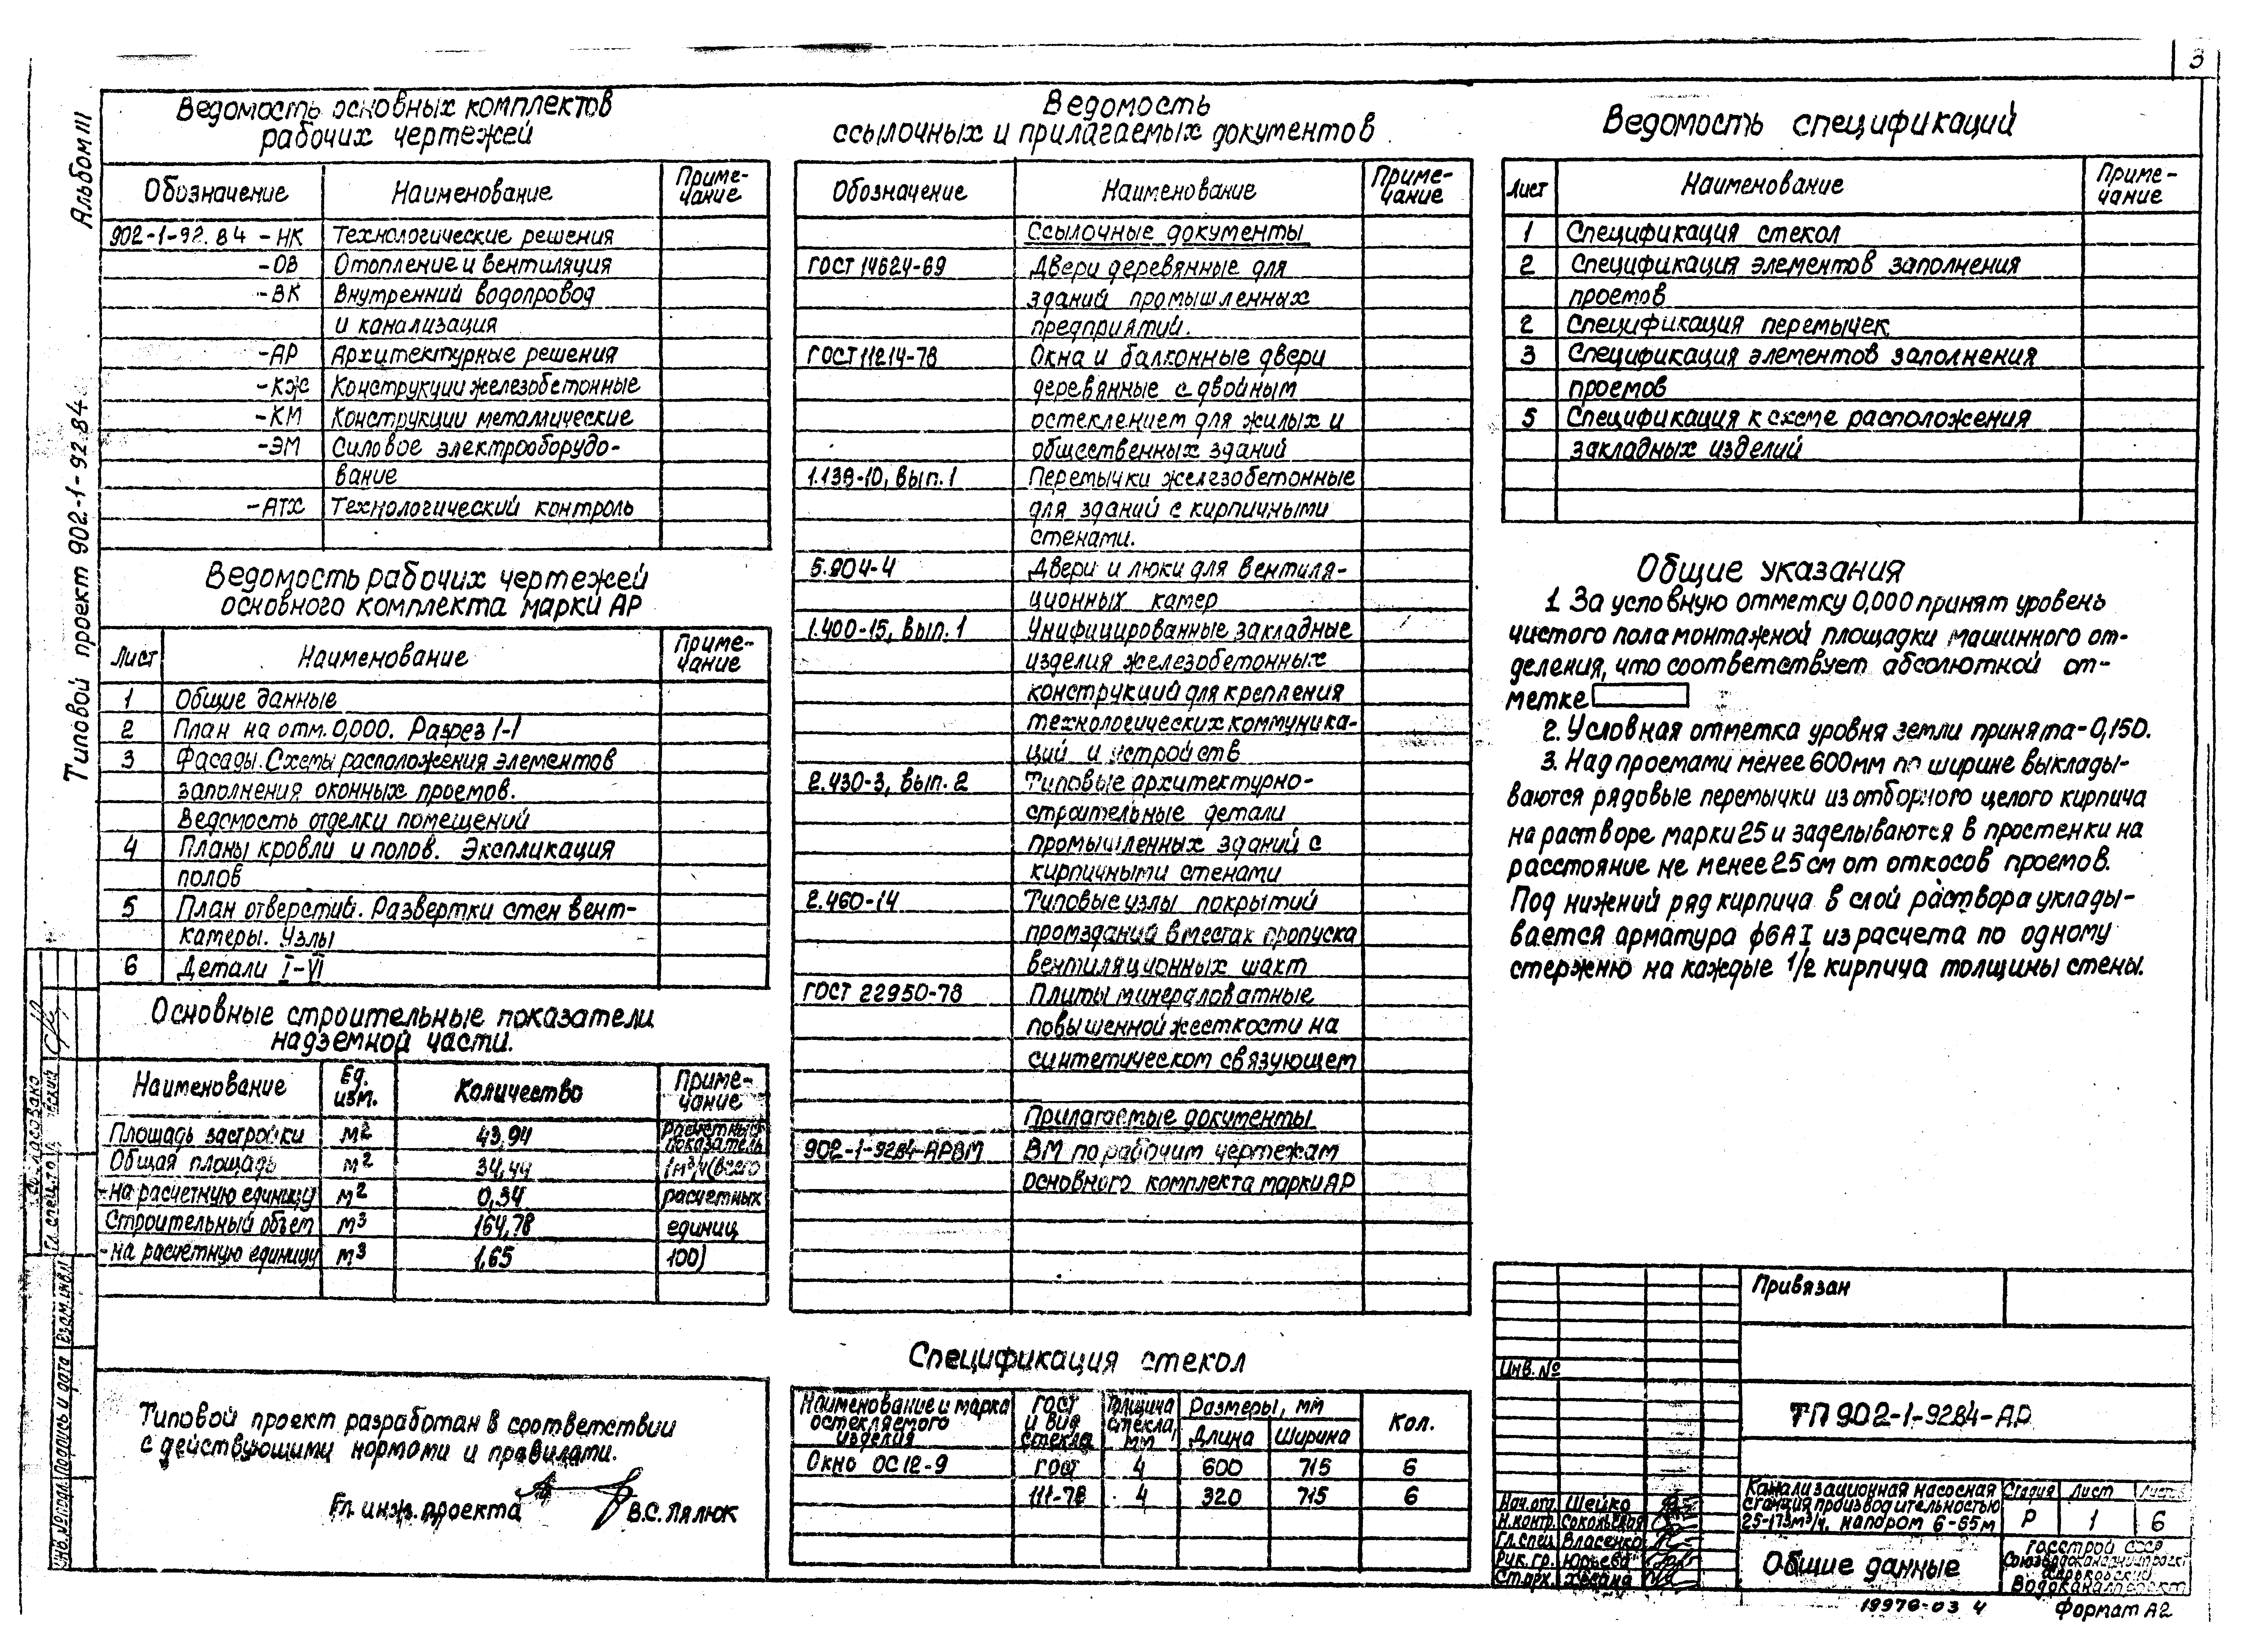 3
Альбом III
Типовой проект 902-1-92.84
Ведомость основных комплектов
рабочих чертежей
Обозначение Наименование Приме-
чание
902-1-92.84-НК Технологические решения
-ОВ Отопление и вентиляция
-ВК Внутренний водопровод
и канализация
-АР Архитектурные решения
-КЖ Конструкции железобетонные
-КМ Конструкции металлические
-ЭМ Силовое электрооборудо-
вание
-АТХ Технологический контроль
Ведомость рабочих чертежей
основного комплекта марки АР
Лист Наименование Приме-
чание
1 Общие данные
2 План на отм. 0,000. Разрез 1-1
3 Фасады. Схемы расположения элементов
заполнения оконных проемов.
Ведомость отделки помещений
4 Планы кровли и полов. Экспликация
полов
5 План отверстий. Развертки стен вент-
камеры. Узлы
6 Детали I-VI
Основные строительные показатели
надземной части.
Наименование Ед.
изм. Количество Приме-
чание
Площадь застройки м2 43,94 Расчетный
показатель
Общая площадь м2 34,44 1м3/ч (всего
-на расчетную единицу м2 0,34 расчетных
Строительный объем м3 164,78 единиц
-на расчетную единицу м3 1,65 100)
Типовой проект разработан в соответствии
с действующими нормами и правилами.
Гл. инж. проекта В.С. Лялюк
Ведомость
ссылочных и прилагаемых документов
Обозначение Наименование Приме-
чание
Ссылочные документы
ГОСТ 14624-69 Двери деревянные для
зданий промышленных
предприятий.
ГОСТ 11214-78 Окна и балконные двери
деревянные с двойным
остеклением для жилых и
общественных зданий
1.139-10, вып. 1 Перемычки железобетонные
для зданий с кирпичными
стенами.
5.904-4 Двери и люки для вентиля-
ционных камер
1.400-15, вып. 1 Унифицированные закладные
изделия железобетонных
конструкций для крепления
технологических коммуника-
ций и устройств
2.430-3, вып. 2 Типовые архитектурно-
строительные детали
промышленных зданий с
кирпичными стенами
2.460-14 Типовые узлы покрытий
промзданий в местах пропуска
вентиляционных шахт
ГОСТ 22950-78 Плиты минераловатные
повышенной жесткости на
синтетическом связующем
Прилагаемые документы
902-1-92.84-АРВМ ВМ по рабочим чертежам
основного комплекта марки АР
Спецификация стекол
Наименование и марка
остекляемого
изделия ГОСТ
и вид
стекла Толщина
стекла,
мм Размеры, мм Кол.
Длина Ширина
Окно ОС12-9 ГОСТ 4 600 715 6
111-78 4 320 715 6
Ведомость спецификаций
Лист Наименование Приме-
чание
1 Спецификация стекол
2 Спецификация элементов заполнения
проемов
2 Спецификация перемычек
3 Спецификация элементов заполнения
проемов
5 Спецификация к схеме расположения
закладных изделий
Общие указания
1. За условную отметку 0,000 принят уровень
чистого пола монтажной площадки машинного от-
деления, что соответствует абсолютной от-
метке
2. Условная отметка уровня земли принята -0,150.
3. Над проемами менее 600мм по ширине выклады-
ваются рядовые перемычки из отборного целого кирпича
на растворе марки 25 и заделываются в простенки на
расстояние не менее 25 см от откосов проемов.
Под нижний ряд кирпича в слой раствора уклады-
вается арматура ф6АI из расчета по одному
стержню на каждые 1/2 кирпича толщины стены.
Привязан
Инв. №
ТП 902-1-92.84-АР
Канализационная насосная
станция производительностью
25-173м3/ч, напором 6-65м
Стадия Лист Листов
Р 1 6
Общие данные
Госстрой СССР
Союзводоканалниипроект
Харьковский
Водоканалпроект
Нач. отд. Шейко
Н. контр. Сокольская
Гл. спец. Власенко
Рук. гр. Юрьева
Ст. арх.
19976-03 4
Формат А2
Согласовано
Гл. спец.
Инв. № подл. Подпись и дата Взам. инв. №